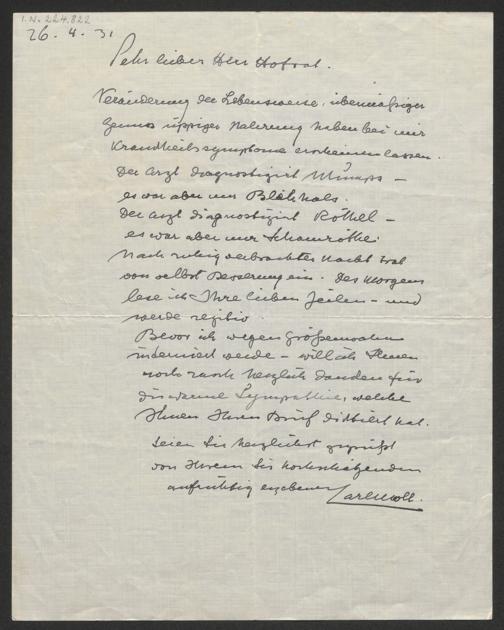 I.N. 224.822
26. 4. 31
Sehr lieber Herr Hofrat.
Veränderung der Lebensweise, übermässiger
Genuss üppiger Nahrung haben bei mir
Krankheitssymptome erscheinen lassen.
Der Arzt diagnostizirt Mumps –
es war aber nur Blähhals.
Der Arzt diagnostizirt Röthel –
es war aber nur Schamröthe.
Nach ruhig verbrachter Nacht trat
von selbst Besserung ein. Des Morgens
lese ich Ihre lieben Zeilen – und
werde
Bevor ich wegen Größenwahn
internirt werde – will ich Ihnen
noch rasch herzlich danken für
die warme Sympathie, welche
Ihnen Ihren Brief diktiert hat.
Seien Sie herzlichst gegrüßt
von Ihrem Sie hochschätzenden
aufrichtig ergebenen Carl Moll.